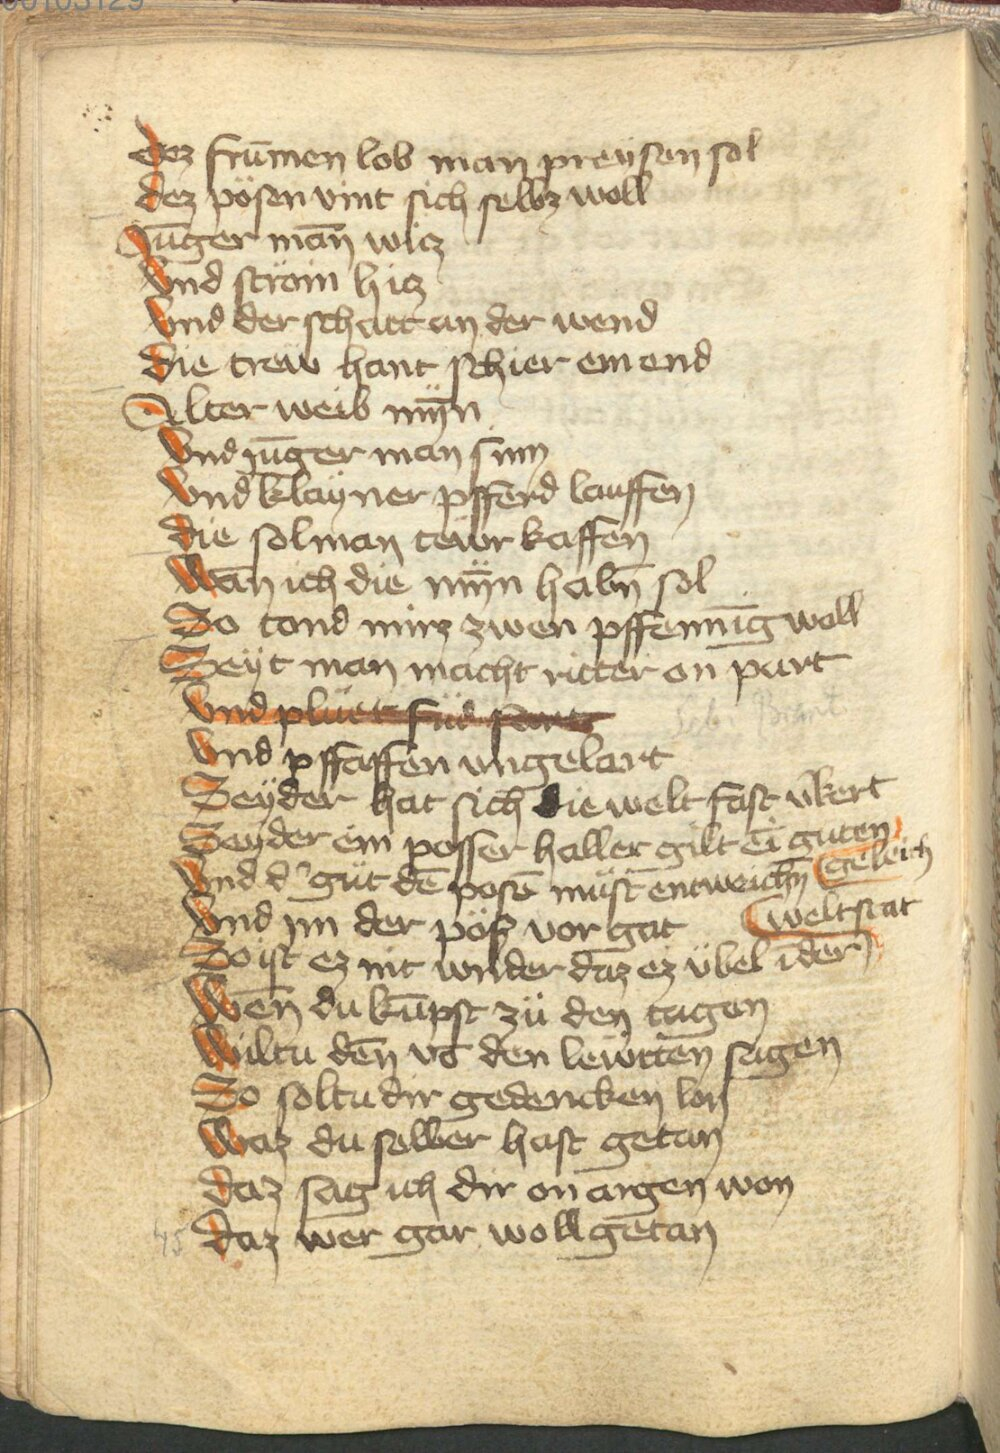 dez frūmen lob man preÿsen sol
dez pösen vint sich selbz woll
Jūger mān wicz
Vnd ströin hicz
Vnd der schatt an der wend
die trew hant schier ein end
Alter weib mÿn
Vnd jūger man sinn
Vnd klaÿner pfferd lauffen
die sol man tewr kaffen
Wān ich die mÿn habn̄ sol
So tond mirz zwen pffenning woll
Seÿt man macht ritter on part
Vnd pffaffen vngelart
Seÿder hat sich die welt fast v̄kert
Seyder ein posser haller gilt ei guten
geleich
Vnd d' güt dē posē müst entweichn̄
Vnd im der pöß vor gat
welt stat
So ist ez nit wnder daz ez übel in der
Wēn du kūmpst zü den tagen
Wiltu dēn vō den lewttēn sagen
So soltu dir gedencken lon
Waz du selber hast getan
daz sag ich dir on argen won
daz wer gar woll getan
45
00103129